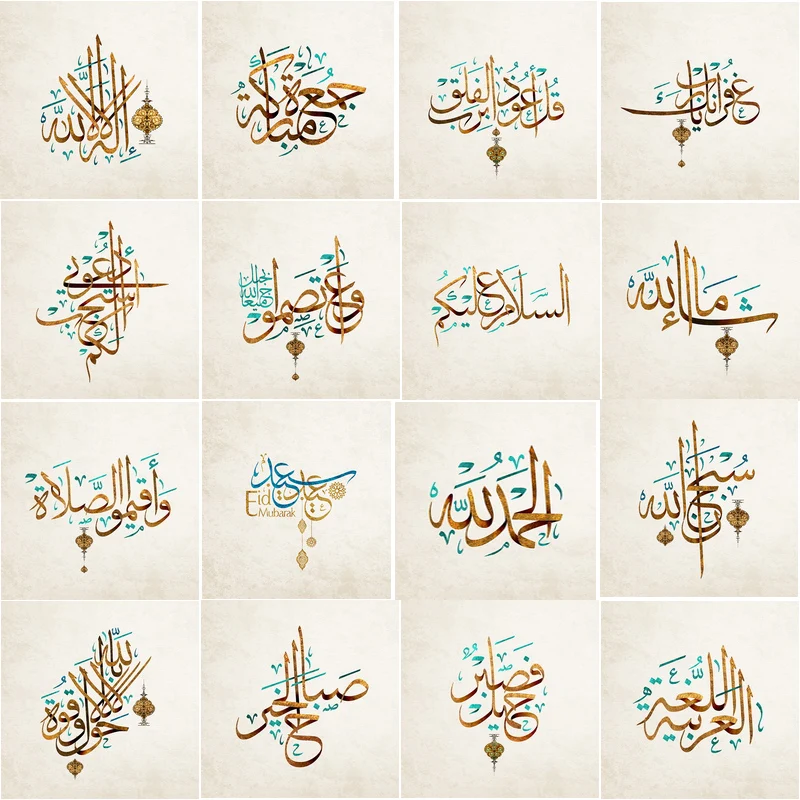 لا إله إلا الله
جمعة مباركة
قل أعوذ برب الفلق
غفرانك ربنا
أدعوني أستجب لكم
واعتصموا بحبل الله جميعا
السلام عليكم
ما شاء الله
وأقيموا الصلاة
عيد سعيد
Eid
Mubarak
الحمد لله
سبحان الله
لا حول ولا قوة إلا بالله
صباح الخير
فصبر جميل
اللغة العربية